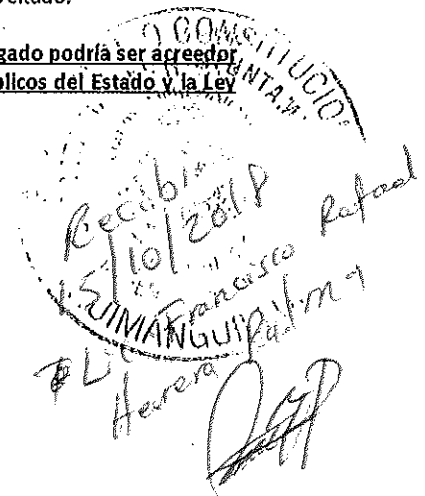 gado podría ser acreedor
blicos del Estado y la Ley
O CONSTITUCIO
Recibi
15/10/2018
Lic Francisco Rafael
Herrera Palma